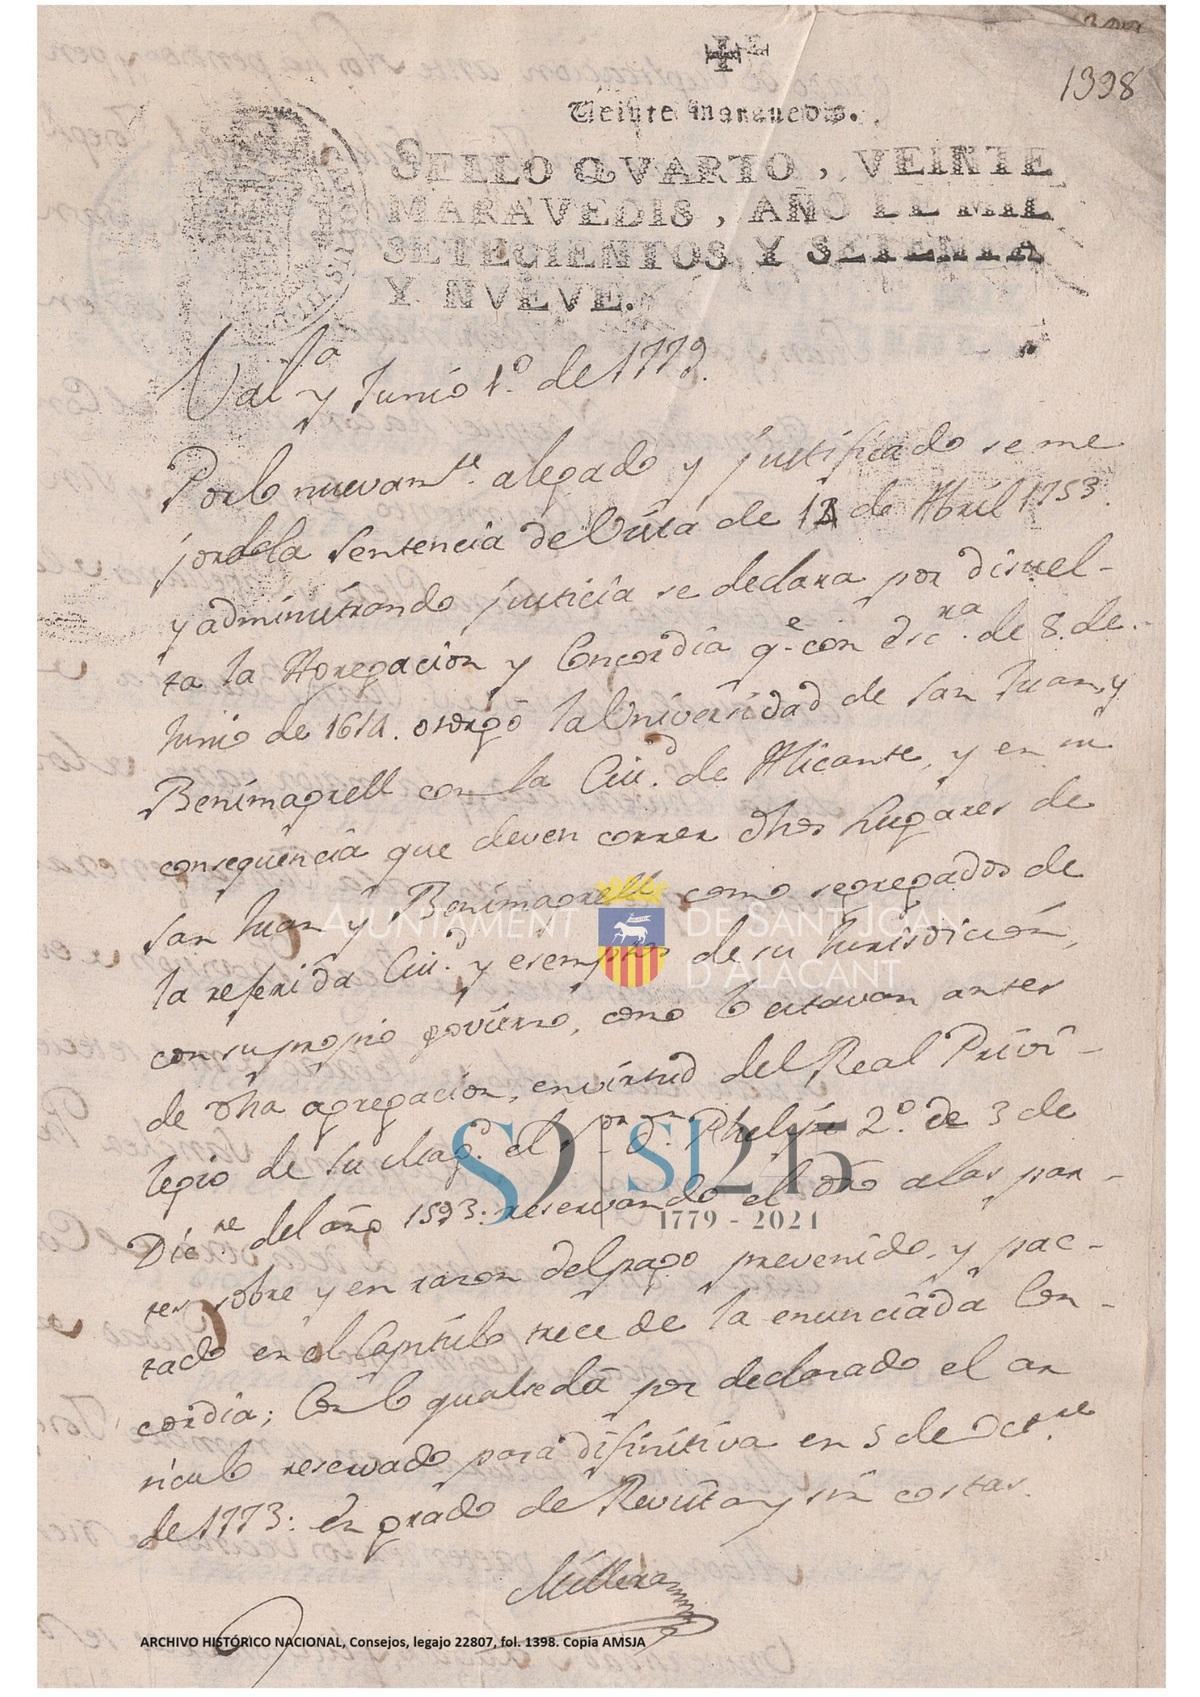 1398
Veinte maravedis.
SELLO QVARTO, VEINTE
MARAVEDIS, AÑO DE MIL
SETECIENTOS Y SETENTA
Y NVEVE.
Val.ª y Junio 1.º de 1779.
Por lo nuevam.te alegado y justificado se me
jora la Sentencia de Vista de 12 de Abril 1753.
y administrando justicia se declara por disuel-
ta la Agregacion y Concordia q.e con escr.ra de 8. de
Junio de 1614. otorgó la Universidad de San Juan, y
Benimagrell con la Ciu.d de Alicante, y en su
consequencia que deven correr dhos Lugares de
San Juan y Benimagrell como segregados de
la referida Ciu.d y esemptos de su Jurisdicion,
con su propio govierno, como lo estavan antes
de dha agregacion, en virtud del Real Privi-
legio de su Mag.d el S.or D.n Phelipe 2.º de 3 de
Dic.re del año 1593: reservando el dro a las par-
tes sobre y en razon del pago prevenido, y pac-
tado en el Capitulo trece de la enunciada Con-
cordia; Con lo qual se dá por declarado el ar
ticulo reservado para difinitiva en 5 de Oct.re
de 1773: en grado de Revista y sin costas.
AJUNTAMENT DE SANT JOAN
D'ALACANT
SJ 245
1779 - 2024
ARCHIVO HISTÓRICO NACIONAL, Consejos, legajo 22807, fol. 1398. Copia AMSJA